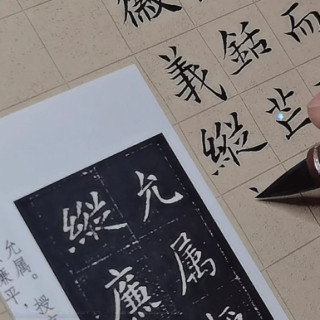 而
銛芒
徽義縱
允属
縱廉
允属。授
平，